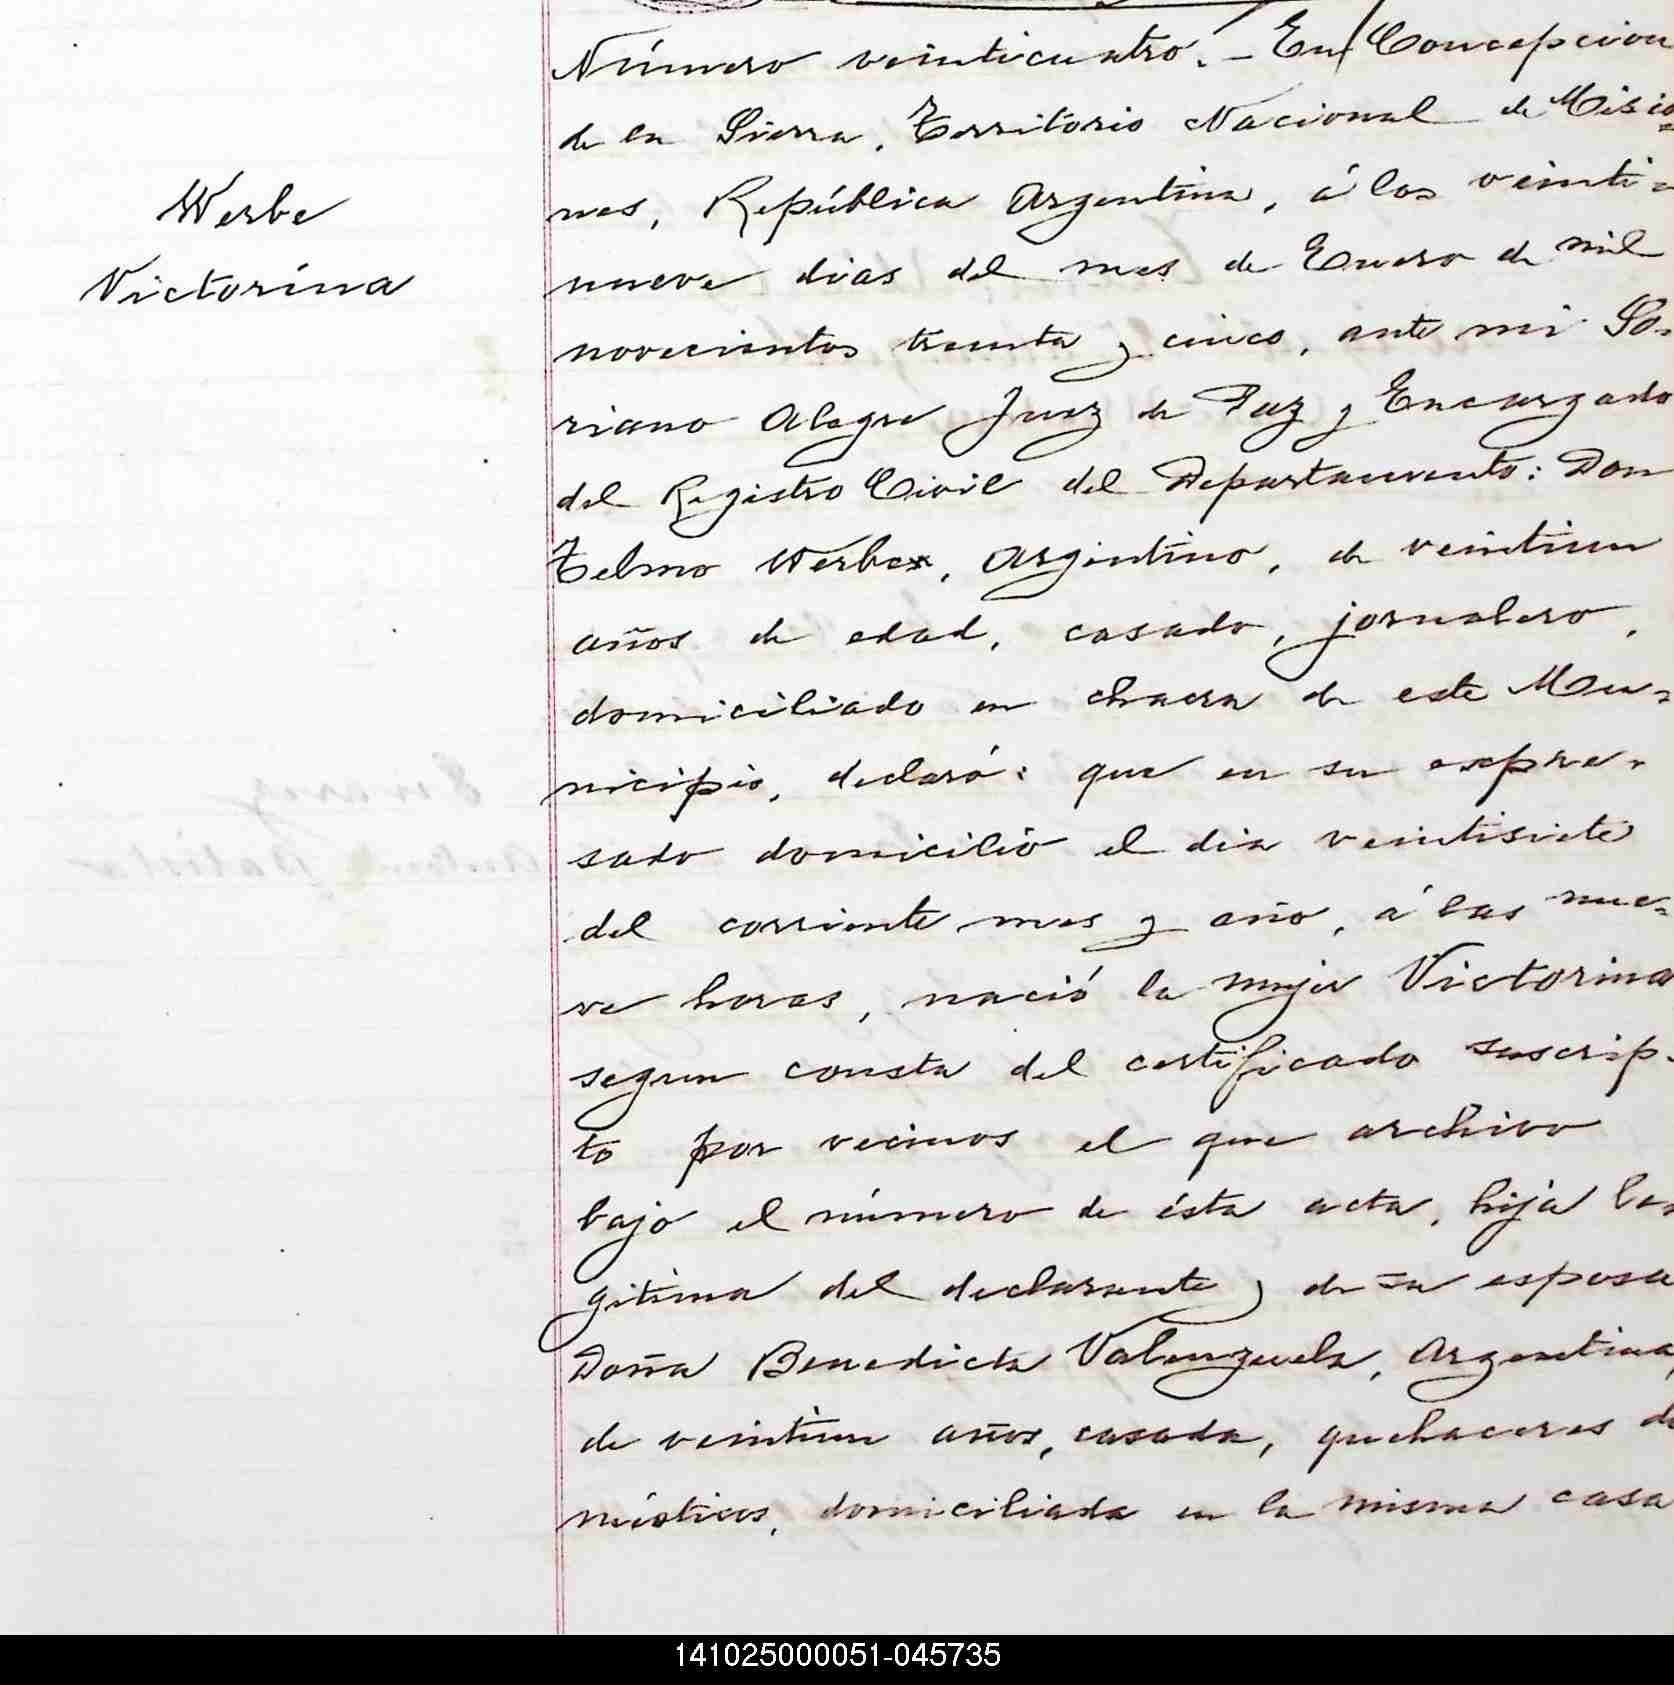 Werbe
Victorina
Número veinticuatro. - En Concepcion
de la Sierra, Territorio Nacional de Misio=
nes, República Argentina, á los veinti=
nueve dias del mes de Enero de mil
novecientos treinta y cinco, ante mi So-
riano Alegre Juez de Paz y Encargado
del Registro Civil del Departamento: Don
Telmo Werbe, Argentino, de veintiun
años de edad, casado, jornalero,
domiciliado en chacra de este Mu-
nicipio, declaró: que en su espre-
sado domicilio el dia veintisiete
del corriente mes y año, á las nue-
ve horas, nació la mujer Victorina
segun consta del certificado suscrip-
to por vecinos el que archivo
bajo el número de ésta acta, hija le-
gitima del declarante y de su esposa
Doña Benedicta Valenzuela, Argentina,
de veintiun años, casada, quehaceres do
mésticos, domiciliada en la misma casa
141025000051-045735